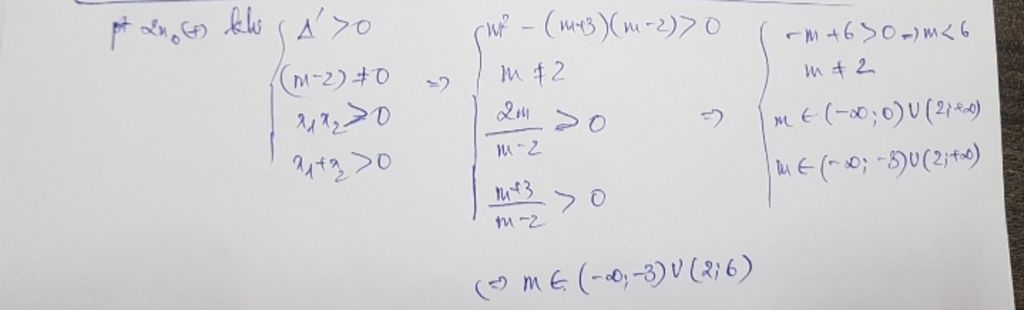 pt 2n₀ (+) khi { Δ' > 0 ; (m-2) ≠ 0 ; x₁x₂ > 0 ; x₁+x₂ > 0
=> { m² - (m+3)(m-2) > 0 ; m ≠ 2 ; 2m/(m-2) > 0 ; (m+3)/(m-2) > 0
=> { -m+6 > 0 => m < 6 ; m ≠ 2 ; m ∈ (-∞; 0) ∪ (2; +∞) ; m ∈ (-∞; -3) ∪ (2; +∞)
(=> m ∈ (-∞; -3) ∪ (2; 6)